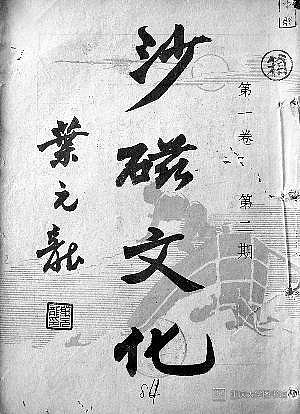 沙磁文化
第一卷 第二期
葉元龍
84